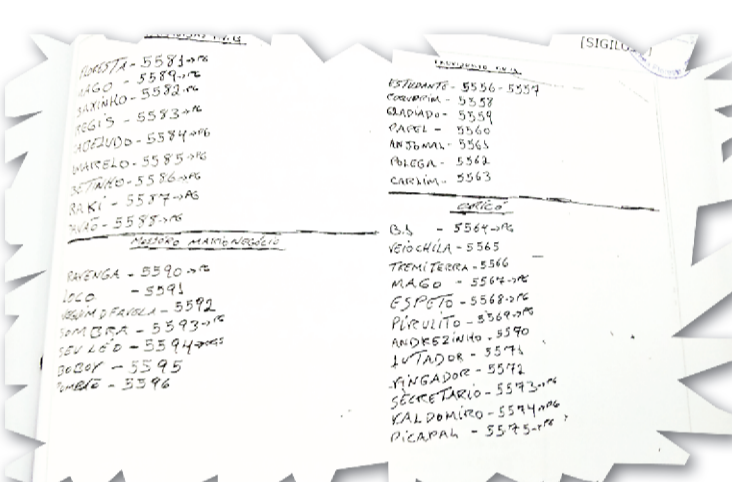 FLORESTA - 5581→PG
LAGO - 5589→PG
BAXINHO - 5582→PG
REGIS - 5583→PG
CABEZUDO - 5584→PG
MARCELO - 5585→PG
BETINHO - 5586→PG
BAKI - 5587→PG
- 5588→PG
MOSSORO MARIO NEGÓCIO
RAVENGA - 5590→PG
LOCO - 5591
5592
SOMBRA - 5593→PG
SEU LÉO - 5594→PG
BOBOY - 5595
5596
[SIGILO
ESTUDANTE - 5556 - 5557
5558
GLADIADO - 5559
PAPEL - 5560
5561
POLEGA - 5562
CARLIM - 5563
CARICÓ
B.S - 5564→PG
VEIOCHILA - 5565
TREMITERRA - 5566
MAGO - 5567→PG
ESPETO - 5568→PG
PIRULITO - 5569→PG
ANDREZINHO - 5570
LUTADOR - 5571
VINGADOR - 5572
SECRETARIO - 5573→PG
VALDOMIRO - 5574→PG
PICAPAU - 5575→PG